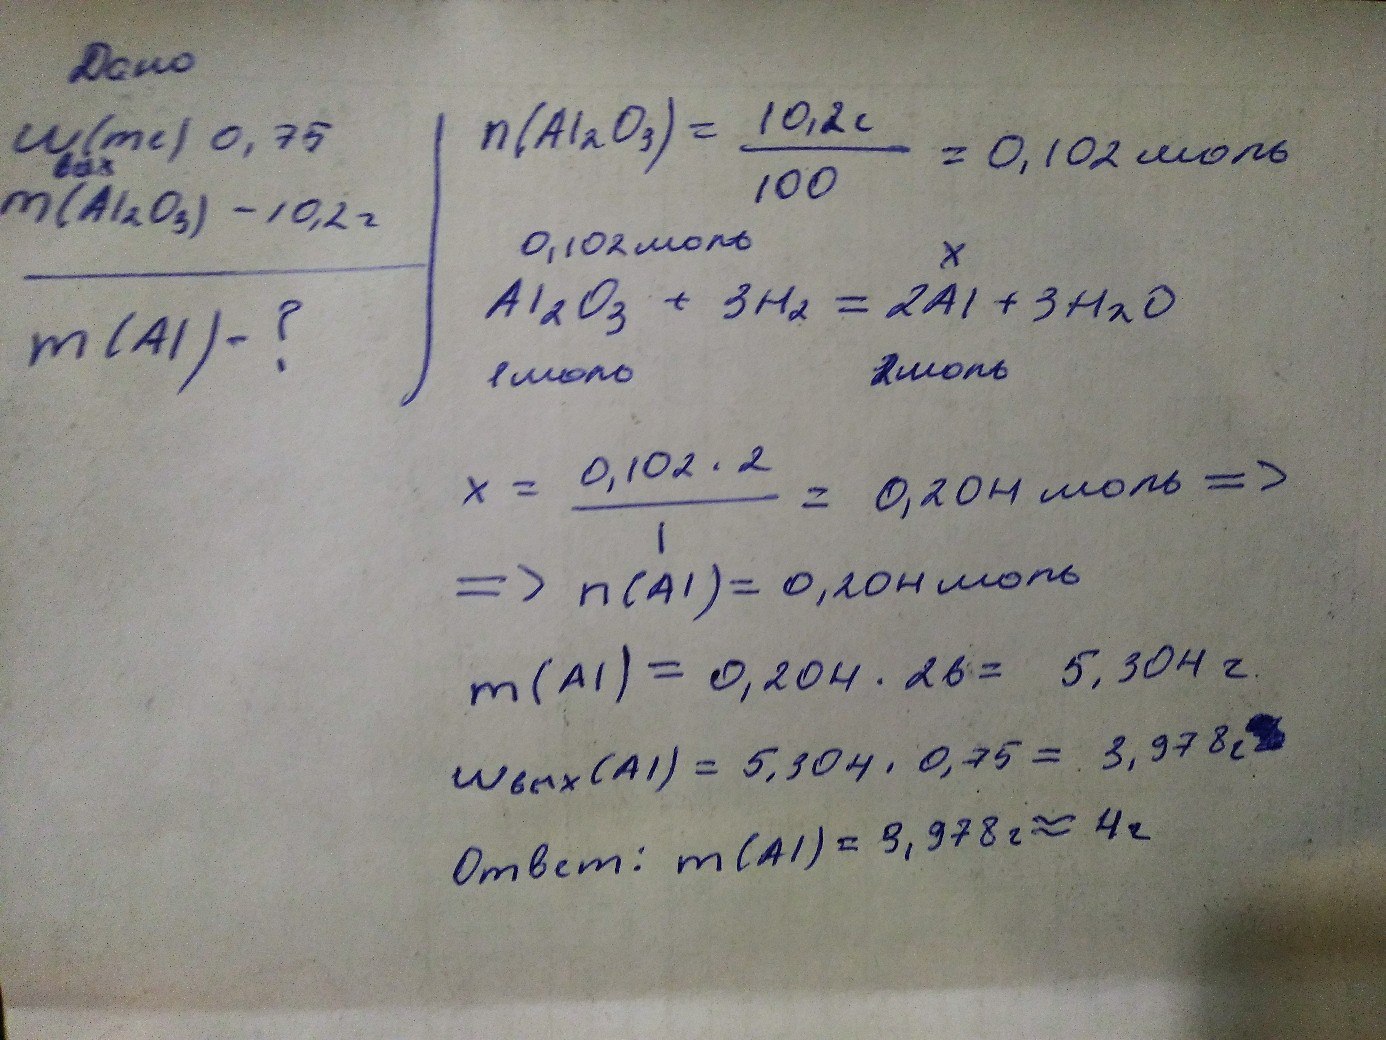 Дано
w(me) 0,75
вых
m(Al₂O₃) - 10,2г
m(Al) - ?
n(Al₂O₃) = 10,2г / 100 = 0,102 моль
0,102 моль x
Al₂O₃ + 3H₂ = 2Al + 3H₂O
1 моль 2 моль
x = 0,102 · 2 / 1 = 0,204 моль =>
=> n(Al) = 0,204 моль
m(Al) = 0,204 · 26 = 5,304 г
wвых(Al) = 5,304 · 0,75 = 3,978г
Ответ: m(Al) = 3,978г ≈ 4г